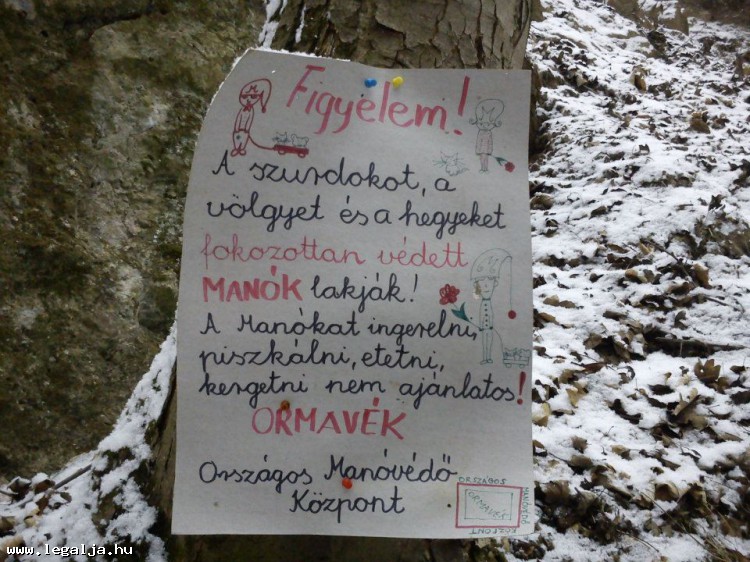 Figyelem!
A szurdokot, a
völgyet és a hegyeket
fokozottan védett
MANÓK lakják!
A Manókat ingerelni,
piszkálni, etetni,
kergetni nem ajánlatos!
ORMAVÉK
Országos Manóvédő
Központ
ORSZÁGOS
MANÓVÉDŐ
KÖZPONT
ORMAVÉK
www.legalja.hu